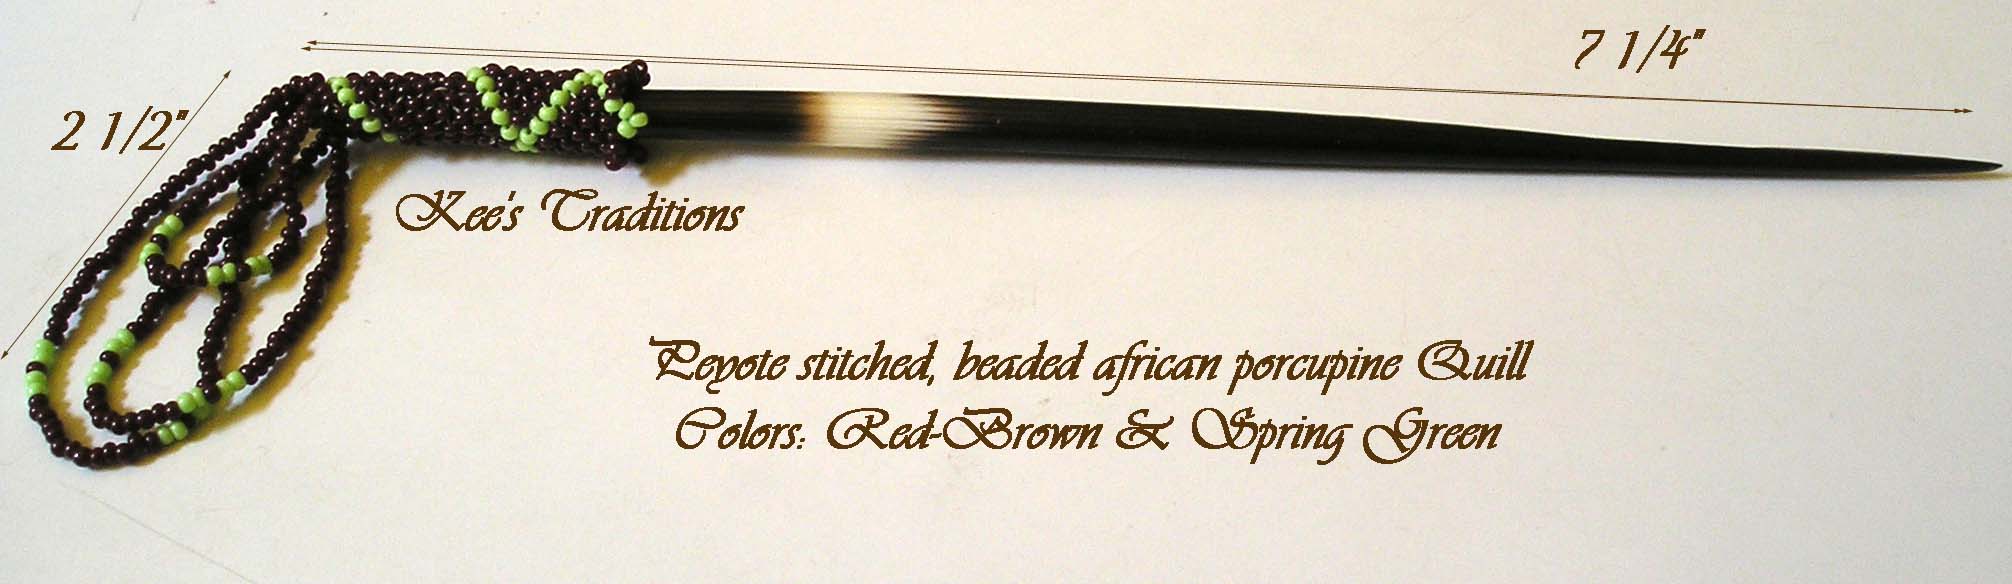 7 1/4"
2 1/2"
Kee's Traditions
Peyote stitched, beaded african porcupine Quill
Colors: Red-Brown & Spring Green